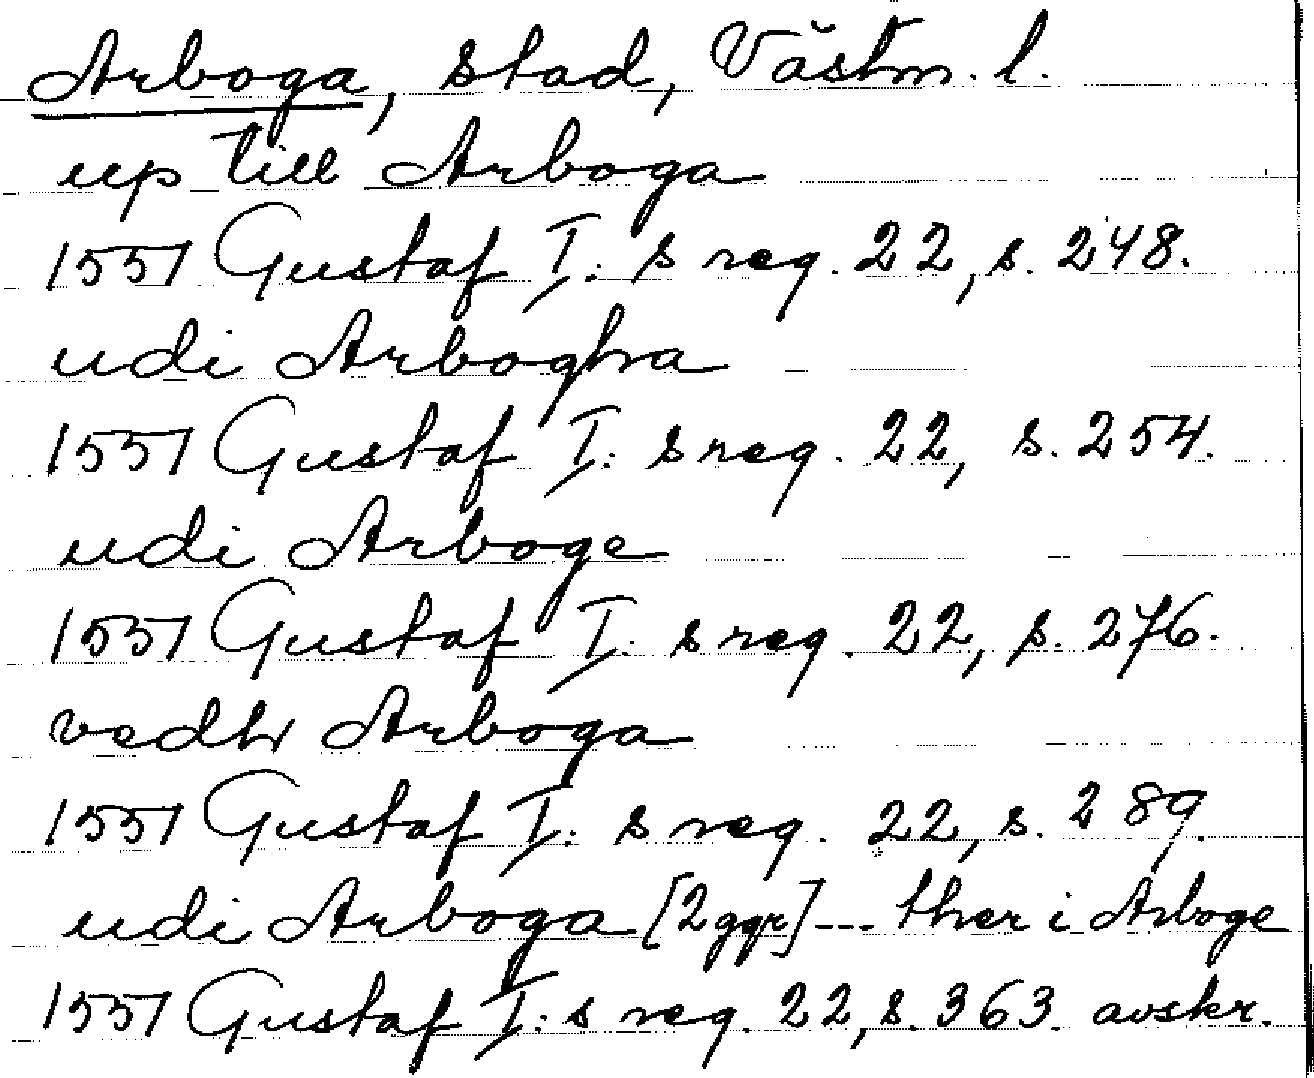 Arboga, stad, Västm. l.
up till Arboga
1551 Gustaf I:s reg. 22, s. 248.
udi Arbogha
1551 Gustaf I:s reg. 22, s. 254.
udi Arboge
1551 Gustaf I:s reg. 22, s. 276.
vedh Arboga
1551 Gustaf I:s reg. 22, s. 289.
udi Arboga [2 ggr] --- ther i Arboge
1551 Gustaf I:s reg. 22, s. 363. avskr.